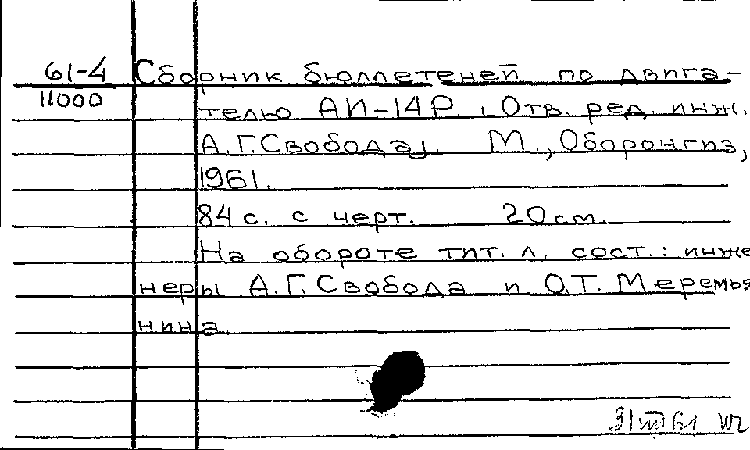 61-4
11000
Сборник бюллетеней по двига-
телю АИ-14Р , Отв. ред. инж.
А.Г.Свобода). М., Оборонгиз,
1961.
84 с. с черт. 20 см.
На обороте тит. л. сост.: инже
неры А.Г.Свобода и О.Т. Меремья
нина.